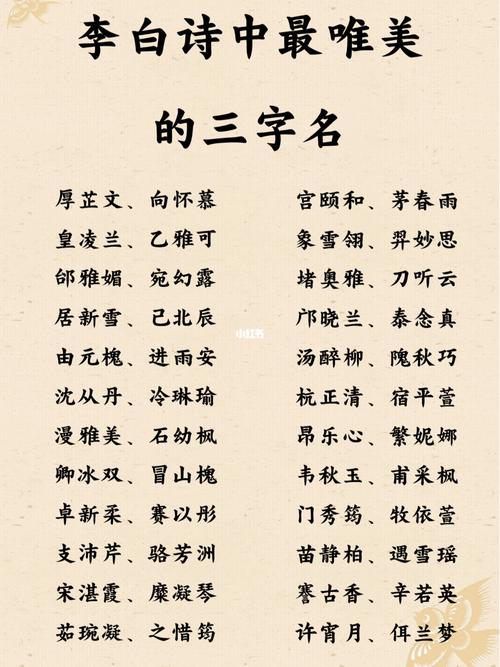 李白诗中最唯美
的三字名
厚芷文、向怀慕
皇凌兰、乙雅可
邰雅媚、宛幻露
居新雪、己北辰
由元槐、进雨安
沈从丹、冷琳瑜
漫雅美、石幼枫
卿冰双、冒山槐
卓新柔、赛以彤
支沛芹、骆芳洲
宋湛霞、糜凝琴
茹琬凝、之惜筠
宫颐和、茅春雨
象雪翎、羿妙思
堵奥雅、刀听云
邝晓兰、泰念真
汤醉柳、隗秋巧
杭正清、宿平萱
昂乐心、繁妮娜
韦秋玉、甫采枫
门秀筠、牧依萱
苗静柏、遇雪瑶
謇古香、辛若英
许宵月、佴兰梦
小红书